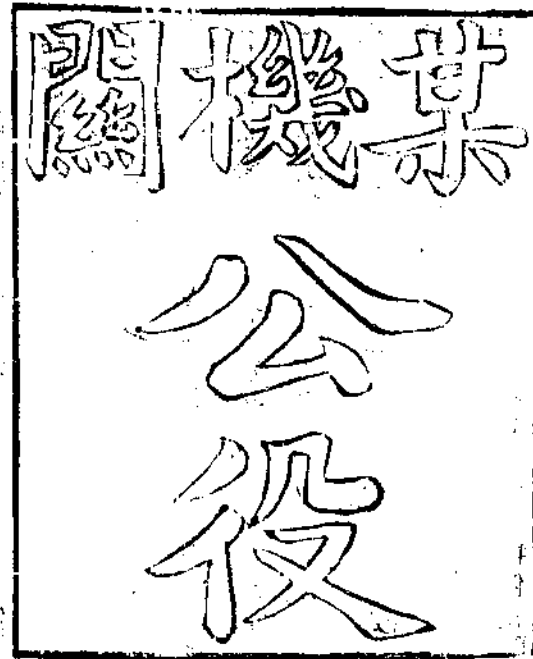 某機關
公役